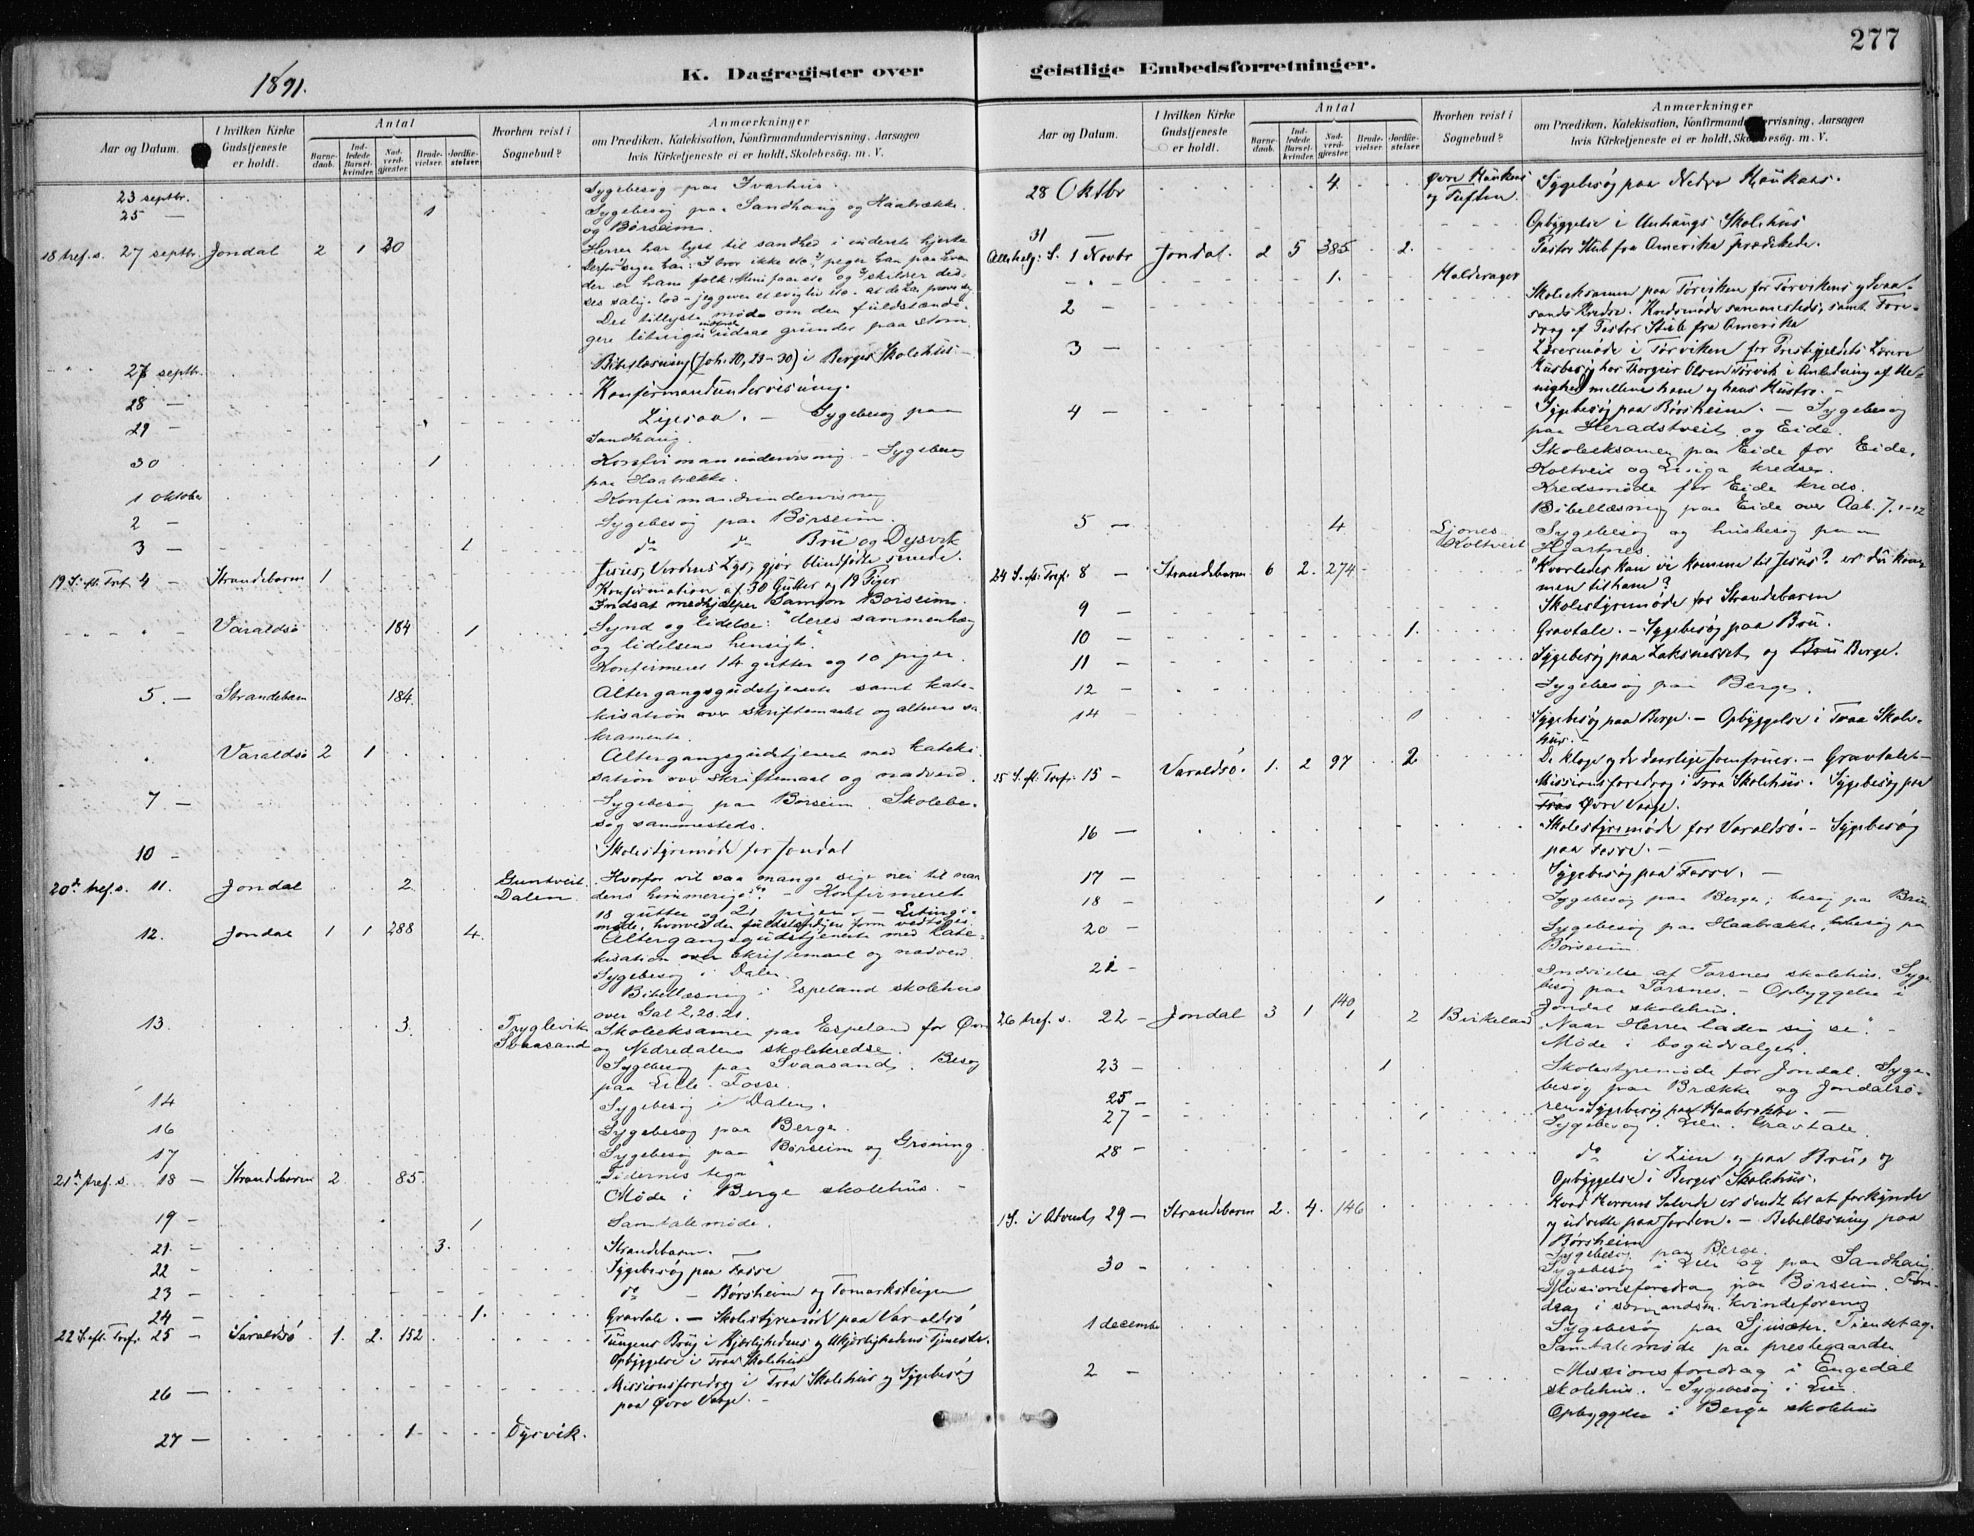 277
1891.
K. Dagregister over geistlige Embedsforretninger.
Aar og Datum.
I hvilken Kirke Gudstjeneste er holdt.
Antal
Barnedaab.
Indledede Barselkvinder.
Nadverdgjester
Brudevielser.
Jordfæstelser
Hvorhen reist i Sognebud?
Anmærkninger
om Prædiken, Katekisation, Konfirmandundervisning, Aarsagen
hvis Kirketjeneste ei er holdt, Skolebesøg, m. V.
23 septbr. Sygebesøg paa Ivarhus.
25 — 1 Sygebesøg paa Sandhaug og Haabrække.
og Børseim.
18 tref. s. 27 septbr. Jondal 2 1 30 Herrer har lyst til sandhed i inderste hjerte
gere liturgi
27 septbr. Bibellæsning (Joh. 10, 23-30) i Berges Skolehus —
28 — Konfirmandundervisning.
29 — — Sygebesøg paa
Sandhaug.
30 1 Konfirmanundervisning — Sygebesøg
paa Haabrække.
1 oktober Konfirmandundervisning
2 — Sygebesøg paa Børseim.
3 — 1 do do Brü og Dysvik
19 S. eft. Tref. 4 — Strandebarm 1 Jesus, Verdens Lys, gjør blindfødte seende.
Konfirmation af 30 Gutter og 19 Piger
Indsat medhjælper Samson Børseim.
Varaldsö 184 1 "Synd og lidelse: deres sammenhæng
og lidelsens hensigt".
Konfirmeret 14 gutter og 10 piger.
5. — Strandebarm 184 Altergangsgudstjeneste samt kate-
kisation over skriftemaalet og alterens sa-
kramente.
Varaldsö 2 1 Altergangsgudstjeneste med kateki-
sation over skriftemaal og nadverd.
7 — Sygebesøg paa Børseim. Skolebe-
søg sammesteds.
10 — Skolestyremøde for Jondal
20de tref. s. 11. Jondal 2 Guntveit Dalen Hvorfor vil saa mange sige nei til naa-
dens himmerige? — Konfirmeret
18 gutter og 21 piger. —
møde, hvorved den fuldstændige form vedtoges.
12. Jondal 1 1 288 4. Altergangsgudstjeneste med kate-
kisation over skriftemaal og nadverd.
Sygebesøg i Dalen.
Bibellæsning i Espeland skolehus
over Gal 2, 20. 21.
13. 3. Tryglevik Svaasand Skoleeksamen paa Espeland for Øvre
og Nedredalens skolekredse.
Sygebesøg paa Svaasand. Besøg
paa Lille Fosse.
14 Sygebesøg i Dalen.
16 Sygebesøg paa Berge.
17 Sygebesøg paa Børseim og Grøning
21de tref. s. 18 — Strandebarm 2 85. "Tidernes tegn"
Møde i Berge skolehus. —
19 — 1 Samtalemøde.
21. — 3. Strandebarm.
22 — Sygebesøg paa Fosse
23 — do — Børsheim og Tomarksteigen
24 — 1. Gravtale. — Skolestyremøde paa Varaldsö
22 S. eft. Tref. 25 — Varaldsö 1. 2. 152 Tungens Brug i Kjærlighedens og Ukjærlighedens Tjeneste.
Opbyggelse i Traa Skolehus
26 — Missionsforedrag i Traa Skolehus og Sygebesøg
paa Øvre Vaage. —
27 — 1 Dysvik.
Aar og Datum.
I hvilken Kirke Gudstjeneste er holdt.
Antal
Barnedaab.
Indledede Barselkvinder.
Nadverdgjester
Brudevielser.
Jordfæstelser
Hvorhen reist i Sognebud?
Anmærkninger
om Prædiken, Katekisation, Konfirmandundervisning, Aarsagen
hvis Kirketjeneste ei er holdt, Skolebesøg, m. V.
28 Oktbr 4. Øvre Haukaas og Tuften Sygebesøg paa Nedre Haukaas.
31 Opbyggelse i Skolehus
Allehelg. S. 1 Novbr Jondal. 2 5 385 2. Pastor Stub fra Amerika prædikede.
1. Haldorager
2 — Skoleeksamen paa Tørviken for Tørvikens og Svaa-
sands Kredse. Kredsmøde sammesteds, samt Fore-
drag af Pastor Stub fra Amerika
3 — Lærermøde i Tørviken for Prestegjeldets Lærere
Husbesøg hos Thorgeir Olsen Tørvik i Anledning af Ue-
nighed mellem ham og hans Hustru. —
4 — Sygebesøg paa Børsheim. — Sygebesøg
paa Heradstveit og Eide.
Skoleeksamen paa Eide for Eide,
Koltveit og kredser.
Kredsmøde for Eide kreds.
Bibellæsning paa Eide over Aab. 7, 1-12
5 — 4 Koltveit Sygebesøg og husbesøg paa
24 S. eft. Tref. 8 — Strandebarm 6 2. 274 "Hvorledes kan vi komme til Jesus? er du kom-
men til ham?
9 — Skolestyremøde for Strandebarm
10 — 1. Gravtale. — Sygebesøg paa Brü.
11 — Sygebesøg paa Laksnesset og Brü Berge.
12 — Sygebesøg paa Berge.
14 — 1 Sygebesøg paa Berge. — Opbyggelse i Traa Skole-
hus. —
25 S. eft. Tref. 15 — Varaldsö. 1. 2 97 2 De kloge og de daarlige Jomfruer. — Gravtale. —
Missionsforedrag i Traa Skolehus. Sygebesøg paa
Traa Øvre Vaage.
16 — Skolestyremøde for Varaldsö. — Sygebesøg
paa Fosse. —
17 — Sygebesøg paa Fosse. —
18 — 1 Sygebesøg paa Berge; besøg paa Brü
20 — Sygebesøg paa Haabrække, besøg paa
Børseim.
21 — Indvielse af Torsnes skolehus. Syge-
besøg paa Torsnes. — Opbyggelse i
Jondal skolehus.
26 tref. s. 22 — Jondal 3 1 140 1 2 Birkeland "Naar Herren laden sig se". —
Møde i bogudvalget.
23 — 1 Skolestyremøde for Jondal. Syge-
besøg paa Brække og Jondalsø-
25 — ren. Sygebesøg paa Haabrække. —
27 — 1 Sygebesøg i Lien. Gravtale.
28 — do i Lien og paa Brü, og
Opbyggelse i Berges Skolehus.
1 S. i Advent 29 — Strandebarm 2. 4. 146 Hvad Herrens Salvede er sendt til at forkynde
og udrette paa Jorden. — Bibellæsning paa
Børsheim
Sygebesøg paa Berge.
30 — Sygebesøg i Lien og paa Sandhaug.
Missionsforedrag paa Børseim. Fore-
drag i sømandsm. kvindeforening
1 december Sygebesøg paa Sjusæter. Tiendetag.
Samtalemøde paa prestegaarden
2 — Missionsforedrag i Engedal
skolehus. — Sygebesøg i Lien.
Opbyggelse i Berge skolehus